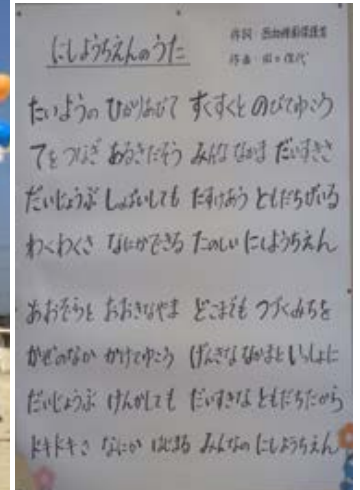 にしようちえんのうた
作詞
作曲
たいようの ひかりあびて すくすくと のびてゆこう
てをつなぎ あるきだそう みんななかま だいすきさ
だいじょうぶ しっぱいしても たすけあう ともだちがいる
わくわくさ なにができる たのしい にしようちえん
あおぞらと おおきなやま どこまでも つづくみちを
かぜのなか かけてゆこう げんきななかまと いっしょに
だいじょうぶ けんかしても だいすきな ともだちだから
ドキドキさ なにか はじまる みんなの にしようちえん